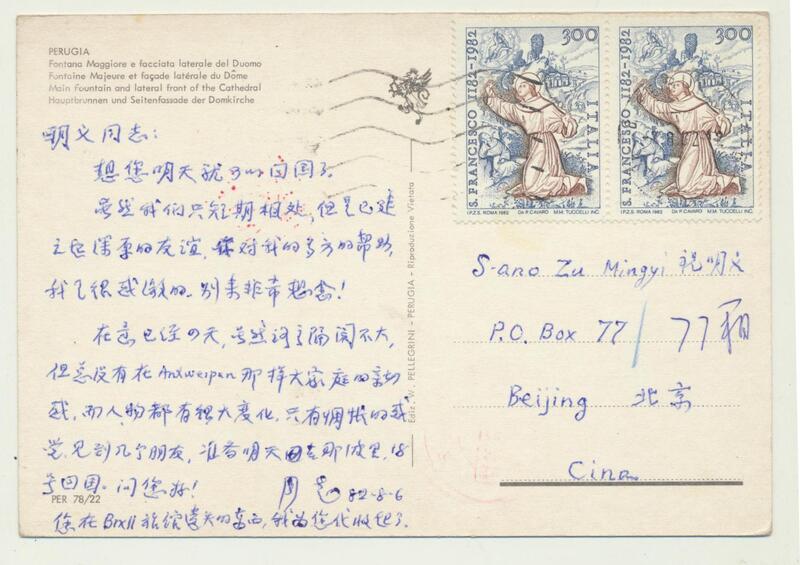 PERUGIA
Fontana Maggiore e facciata laterale del Duomo
Fontaine Majeure et façade latérale du Dôme
Main Fountain and lateral front of the Cathedral
Hauptbrunnen und Seitenfassade der Domkirche
明义同志:
想您明天就可以回国了。
虽然我们只短期相处,但是已建
立起深厚的友谊,您对我的多方的帮助
我是很感激的。别来非常想念!
在意已经四天,虽然语言隔阂不大,
但总没有在Antwerpen那样大家庭的亲切
感,而人物都有很大变化,只有惆怅的感
觉,见到几个朋友,准备明天去那波里,18
号回国。问您好!
82-8-6
PER 78/22
您在 旅馆遗失的东西,我为您代收起了。
Ediz. W. PELLEGRINI - PERUGIA - Riproduzione Vietata
S. FRANCESCO 1182-1982
300
ITALIA
I.P.Z.S. ROMA 1982 Da P. CAVARO M.M. TUCCELLI INC.
S. FRANCESCO 1182-1982
300
ITALIA
I.P.Z.S. ROMA 1982 Da P. CAVARO M.M. TUCCELLI INC.
S-ano Zu Mingyi 祝明义
P.O. Box 77 / 77箱
Beijing 北京
Cina